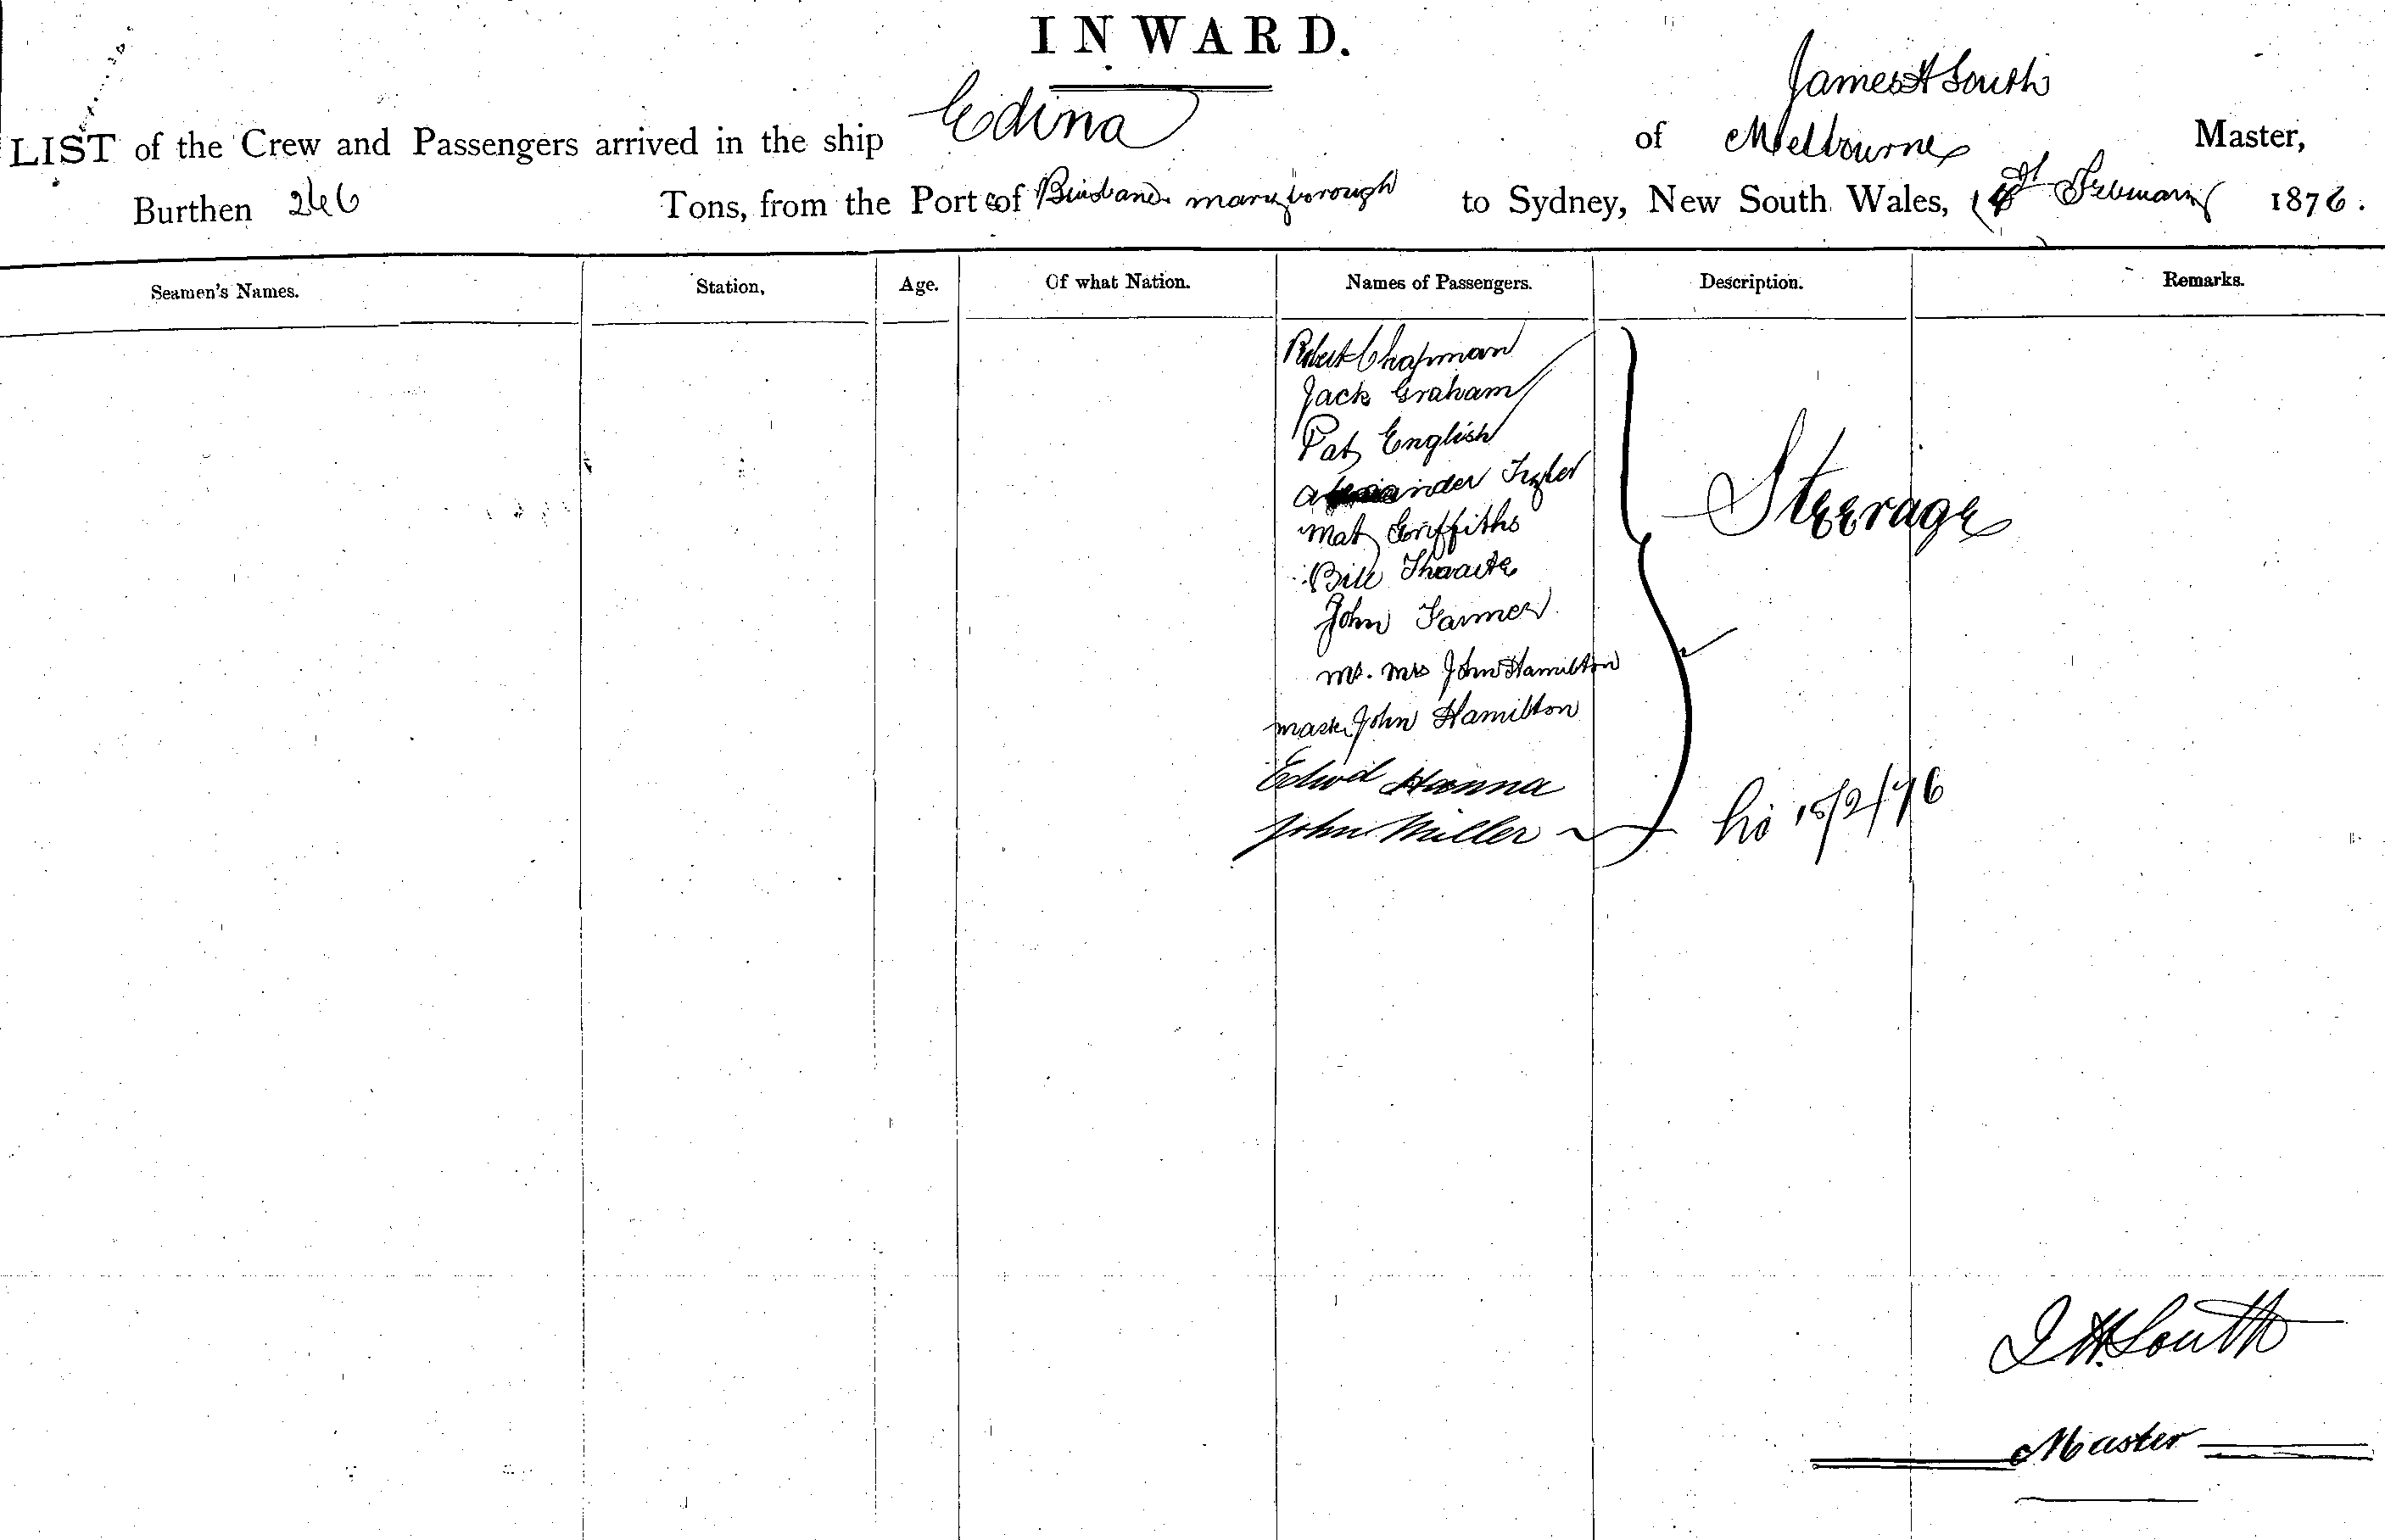 INWARD.
James H South
LIST of the Crew and Passengers arrived in the ship Edina of Melbourne Master,
Burthen 246 Tons, from the Port of Brisbane Maryborough to Sydney, New South Wales, February 1876.
Seamen's Names. Station, Age. Of what Nation. Names of Passengers. Description. Remarks.
Robert Chapman
Jack Graham
Pat English
Mat Griffiths
Bill Thwaite
John Farmer
Steerage
Mr. Mrs John Hamilton
Master John Hamilton
Edwd Hanna
John Miller
15/2/76
J H South
Master